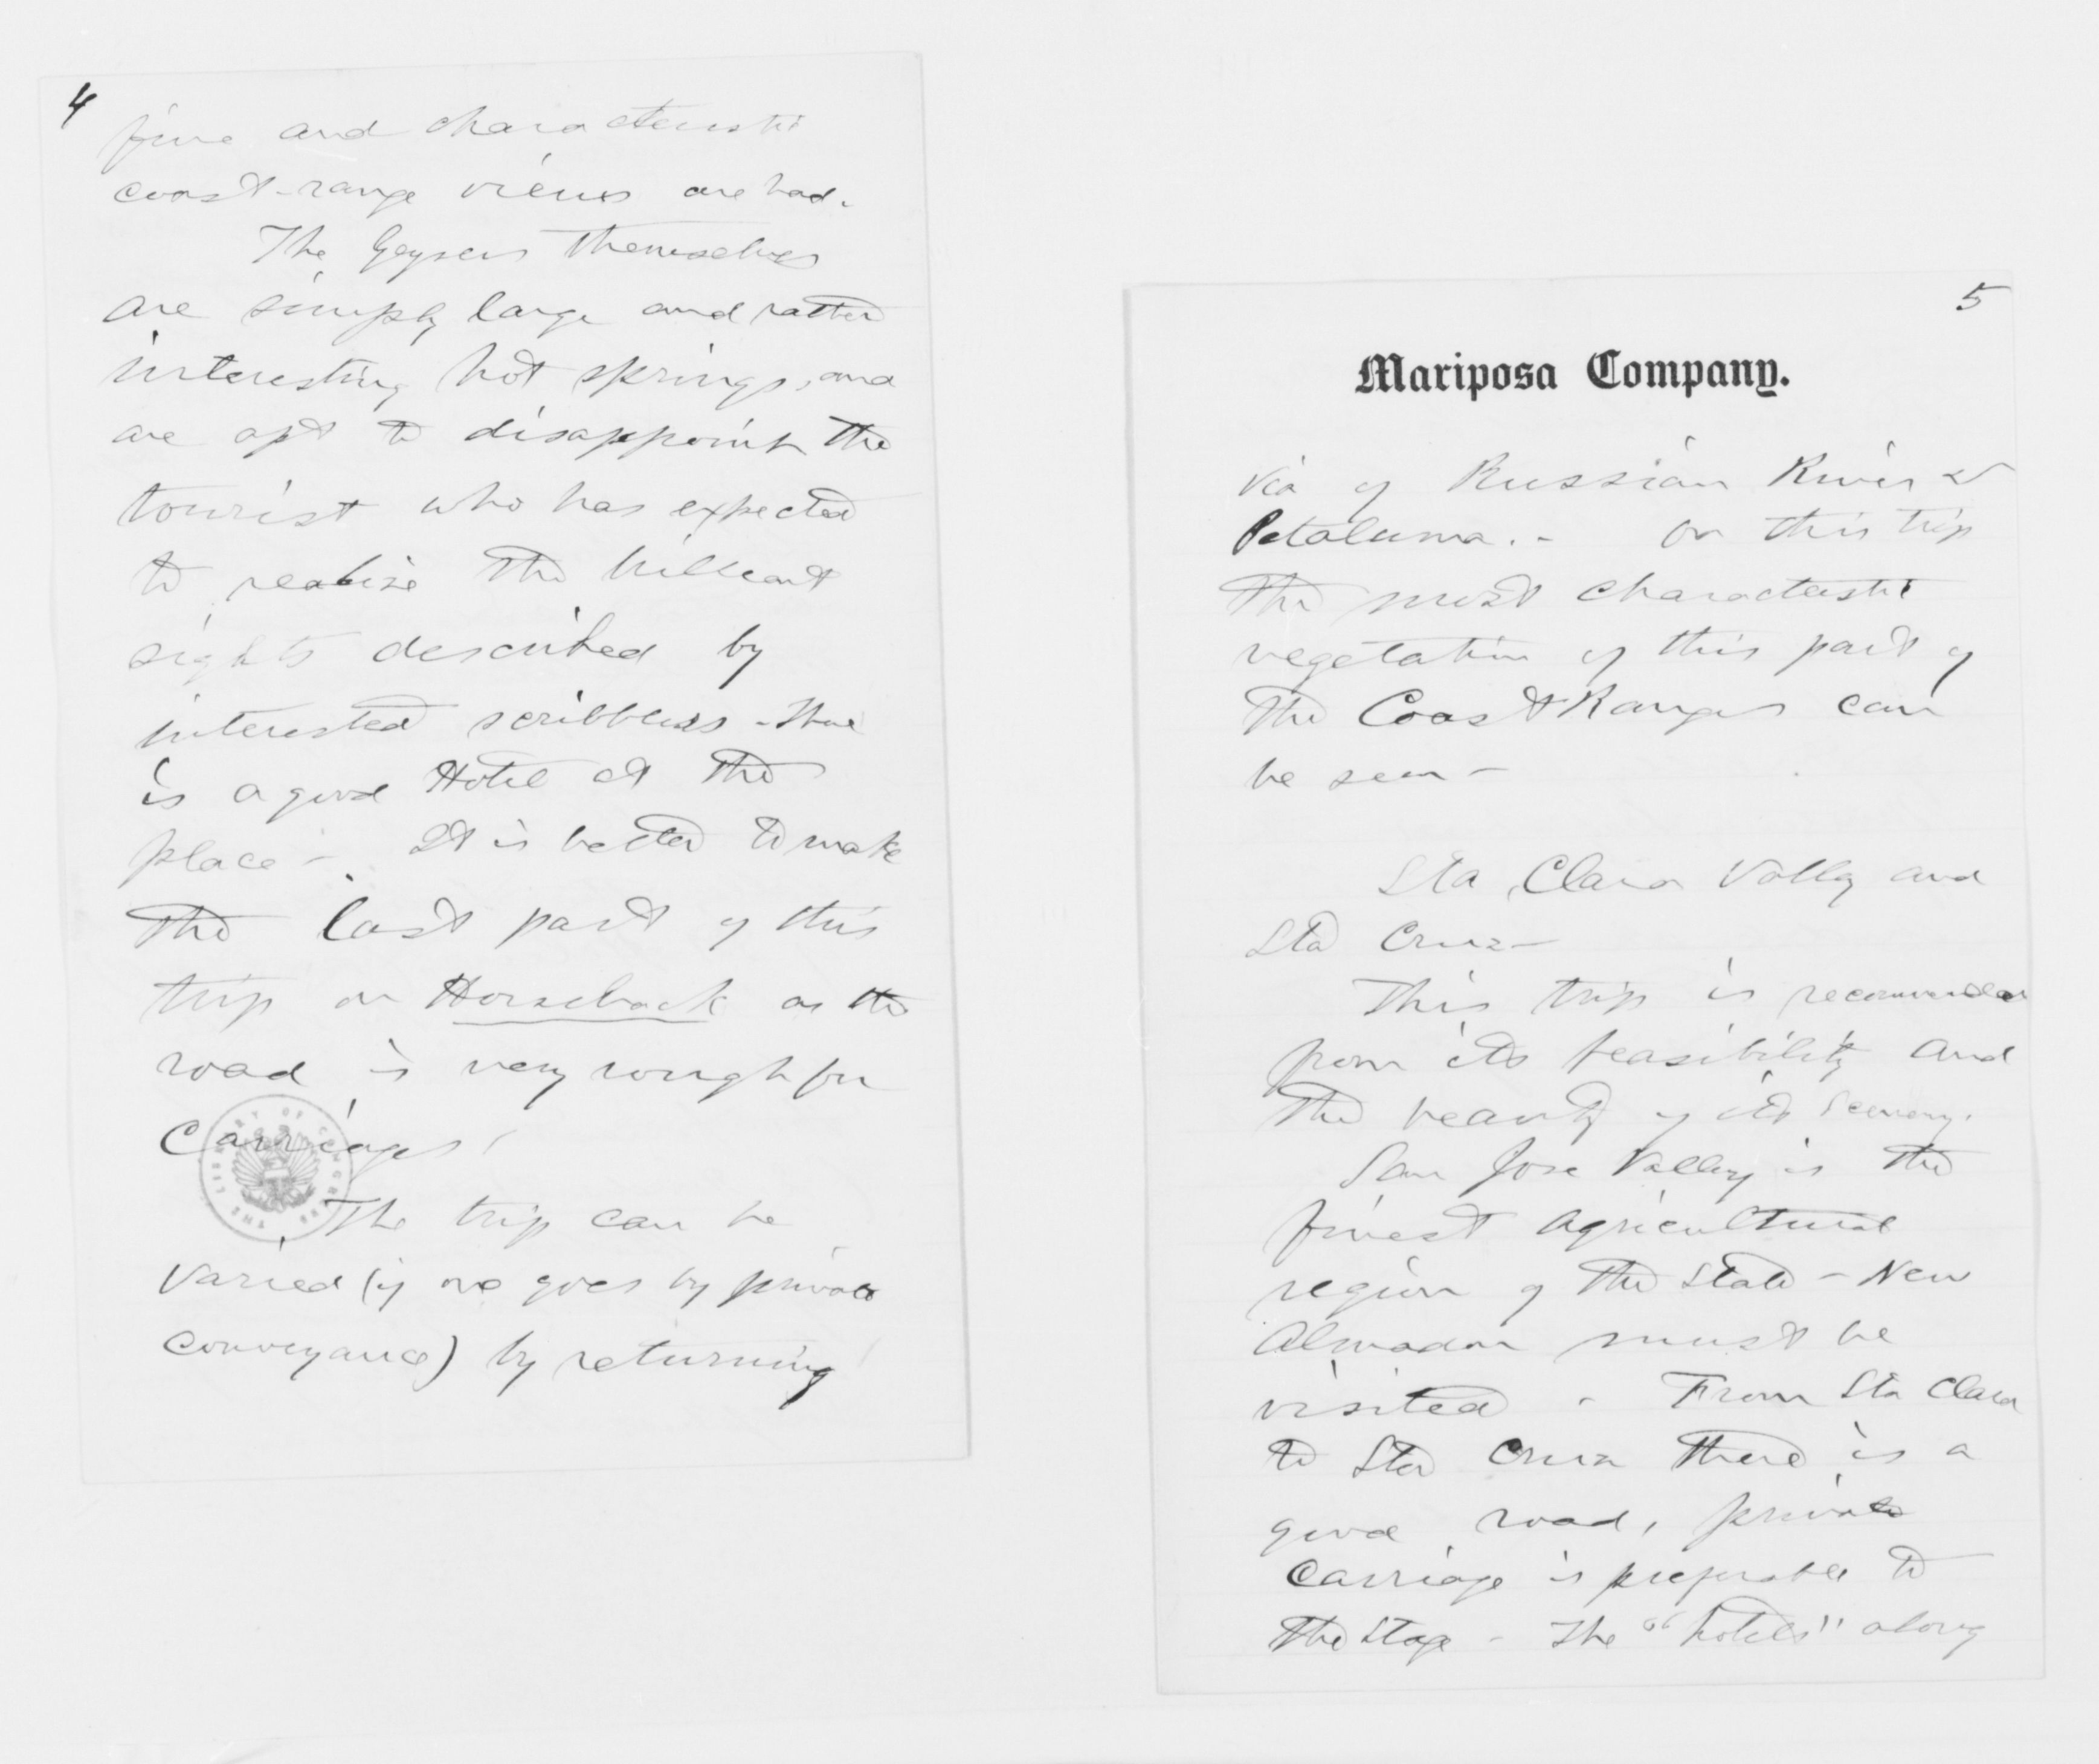 4
fine and characteristic
coast-range views are had.
The Geysers themselves
are simply large and rather
interesting hot springs, and
are apt to disappoint the
tourist who has expected
to realize the brilliant
sights described by
interested scribblers - There
is a good Hotel at the
place - It is better to make
the last part of this
trip on Horseback as the
road is very rough for
Carriages
THE LIBRARY OF CONGRESS
The trip can be
varied (if one goes by private
conveyance) by returning
5
Mariposa Company.
via of Russian River &
Petaluma. - On this trip
the most characteristic
vegetation of this part of
the Coast Ranges can
be seen -
Sta Clara Valley and
Sta Cruz -
This trip is recommended
from its feasibility and
the beauty of its scenery.
San Jose Valley is the
finest agricultural
region of the State - New
Almaden must be
visited - From Sta Clara
to Sta Cruz there is a
good road, private
Carriage is preferable to
the Stage - The "hotels" along